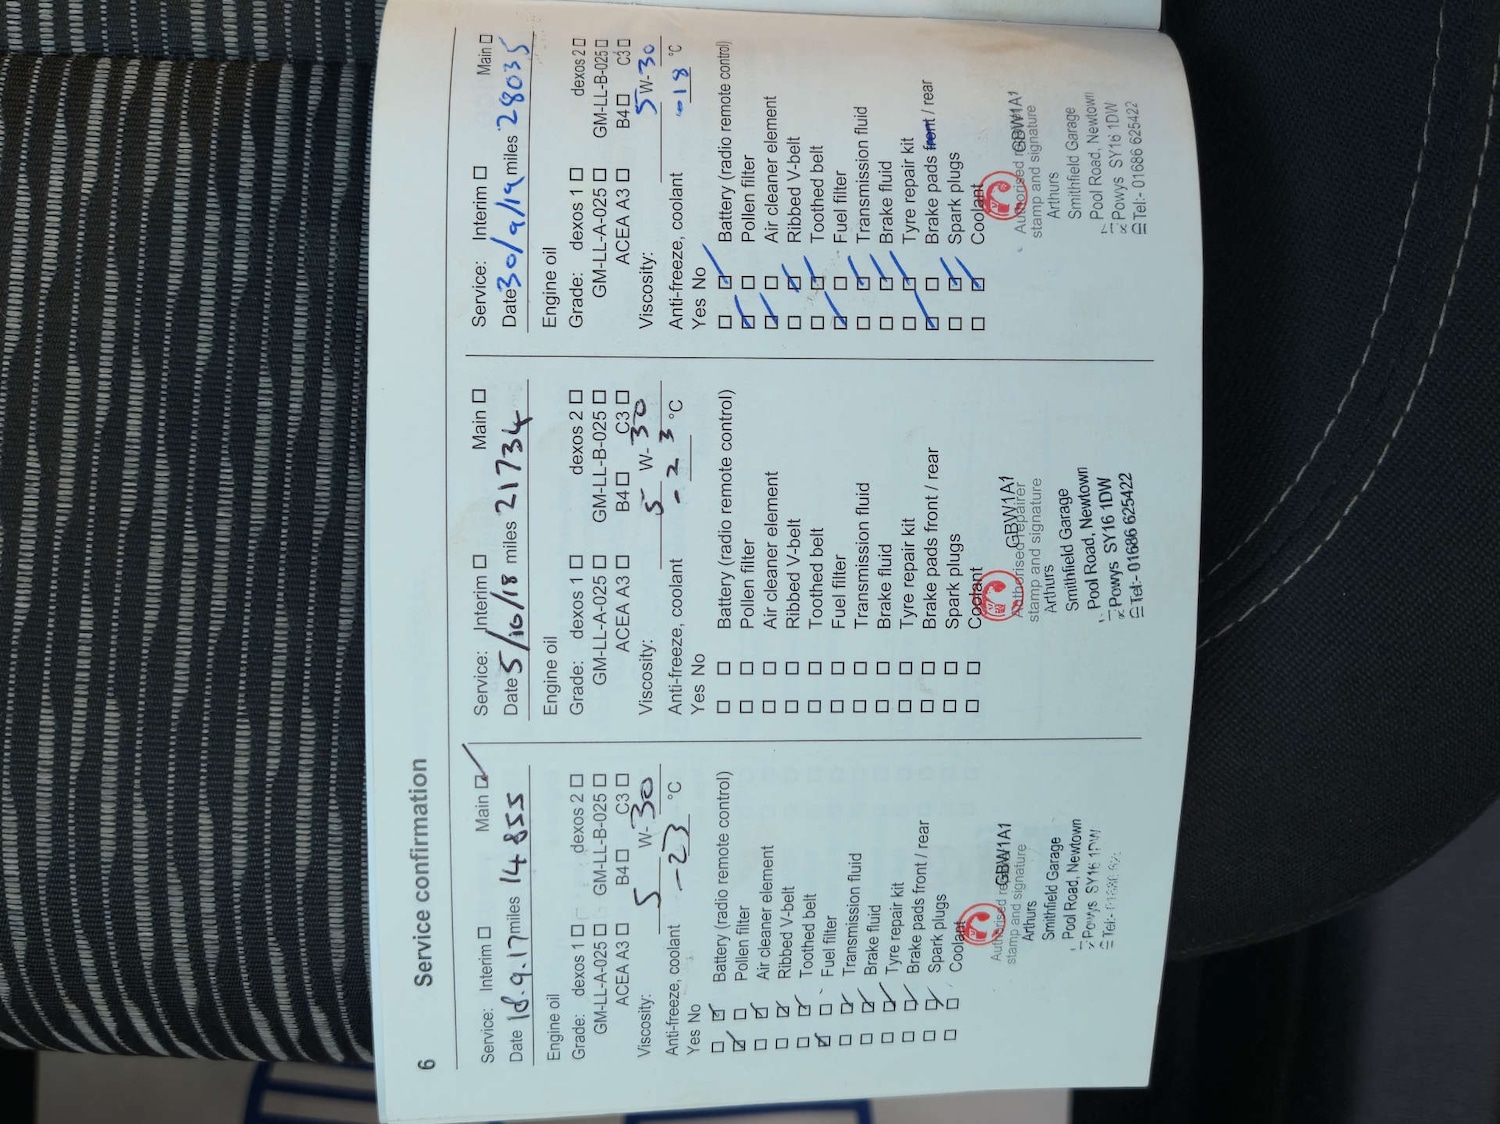 6 Service confirmation
Service: Interim Main
Date 18.9.17 miles 14855
Engine oil
Grade: dexos 1 dexos 2
GM-LL-A-025 GM-LL-B-025
ACEA A3 B4 C3
Viscosity: 5 W-30
Anti-freeze, coolant -23 °C
Yes No
Battery (radio remote control)
Pollen filter
Air cleaner element
Ribbed V-belt
Toothed belt
Fuel filter
Transmission fluid
Brake fluid
Tyre repair kit
Brake pads front / rear
Spark plugs
Coolant
GBW1A1
stamp and signature
Arthurs
Smithfield Garage
Pool Road, Newtown
Powys SY16 1DW
Tel:-
Service: Interim Main
Date 5/10/18 miles 21734
Engine oil
Grade: dexos 1 dexos 2
GM-LL-A-025 GM-LL-B-025
ACEA A3 B4 C3
Viscosity: 5 W-30
Anti-freeze, coolant -23 °C
Yes No
Battery (radio remote control)
Pollen filter
Air cleaner element
Ribbed V-belt
Toothed belt
Fuel filter
Transmission fluid
Brake fluid
Tyre repair kit
Brake pads front / rear
Spark plugs
Coolant
GBW1A1
Authorised repairer
stamp and signature
Arthurs
Smithfield Garage
Pool Road, Newtown
Powys SY16 1DW
Tel:- 01686 625422
Service: Interim Main
Date 30/9/19 miles 28035
Engine oil
Grade: dexos 1 dexos 2
GM-LL-A-025 GM-LL-B-025
ACEA A3 B4 C3
Viscosity: 5 W-30
Anti-freeze, coolant °C
Yes No
Battery (radio remote control)
Pollen filter
Air cleaner element
Ribbed V-belt
Toothed belt
Fuel filter
Transmission fluid
Brake fluid
Tyre repair kit
Brake pads front / rear
Spark plugs
Coolant
GBW1A1
Authorised
stamp and signature
Arthurs
Smithfield Garage
Pool Road, Newtown
Powys SY16 1DW
Tel:- 01686 625422